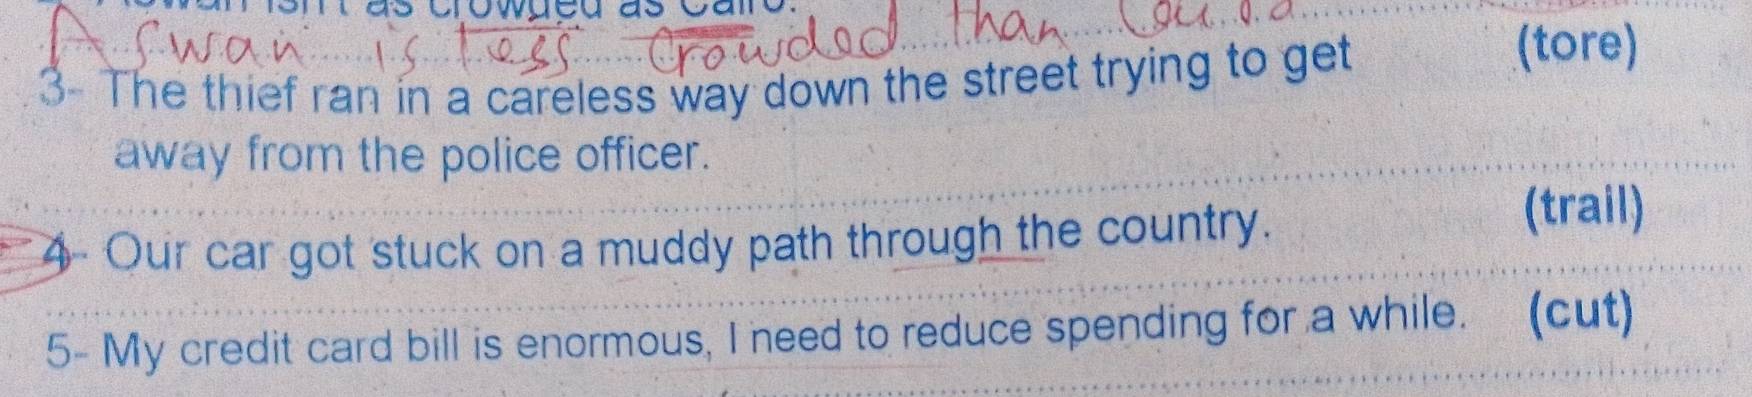 isn't as crowded as Cairo.
Aswan is less crowded than Cairo
3- The thief ran in a careless way down the street trying to get (tore)
away from the police officer.
4- Our car got stuck on a muddy path through the country. (trail)
5- My credit card bill is enormous, I need to reduce spending for a while. (cut)